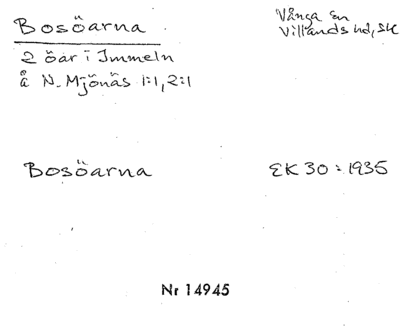 Bosöarna
Vånga sn
Villands hd, Sk
2 öar i Immeln
å N. Mjönäs 1:1, 2:1
Bosöarna
EK 30 : 1935
Nr 14945